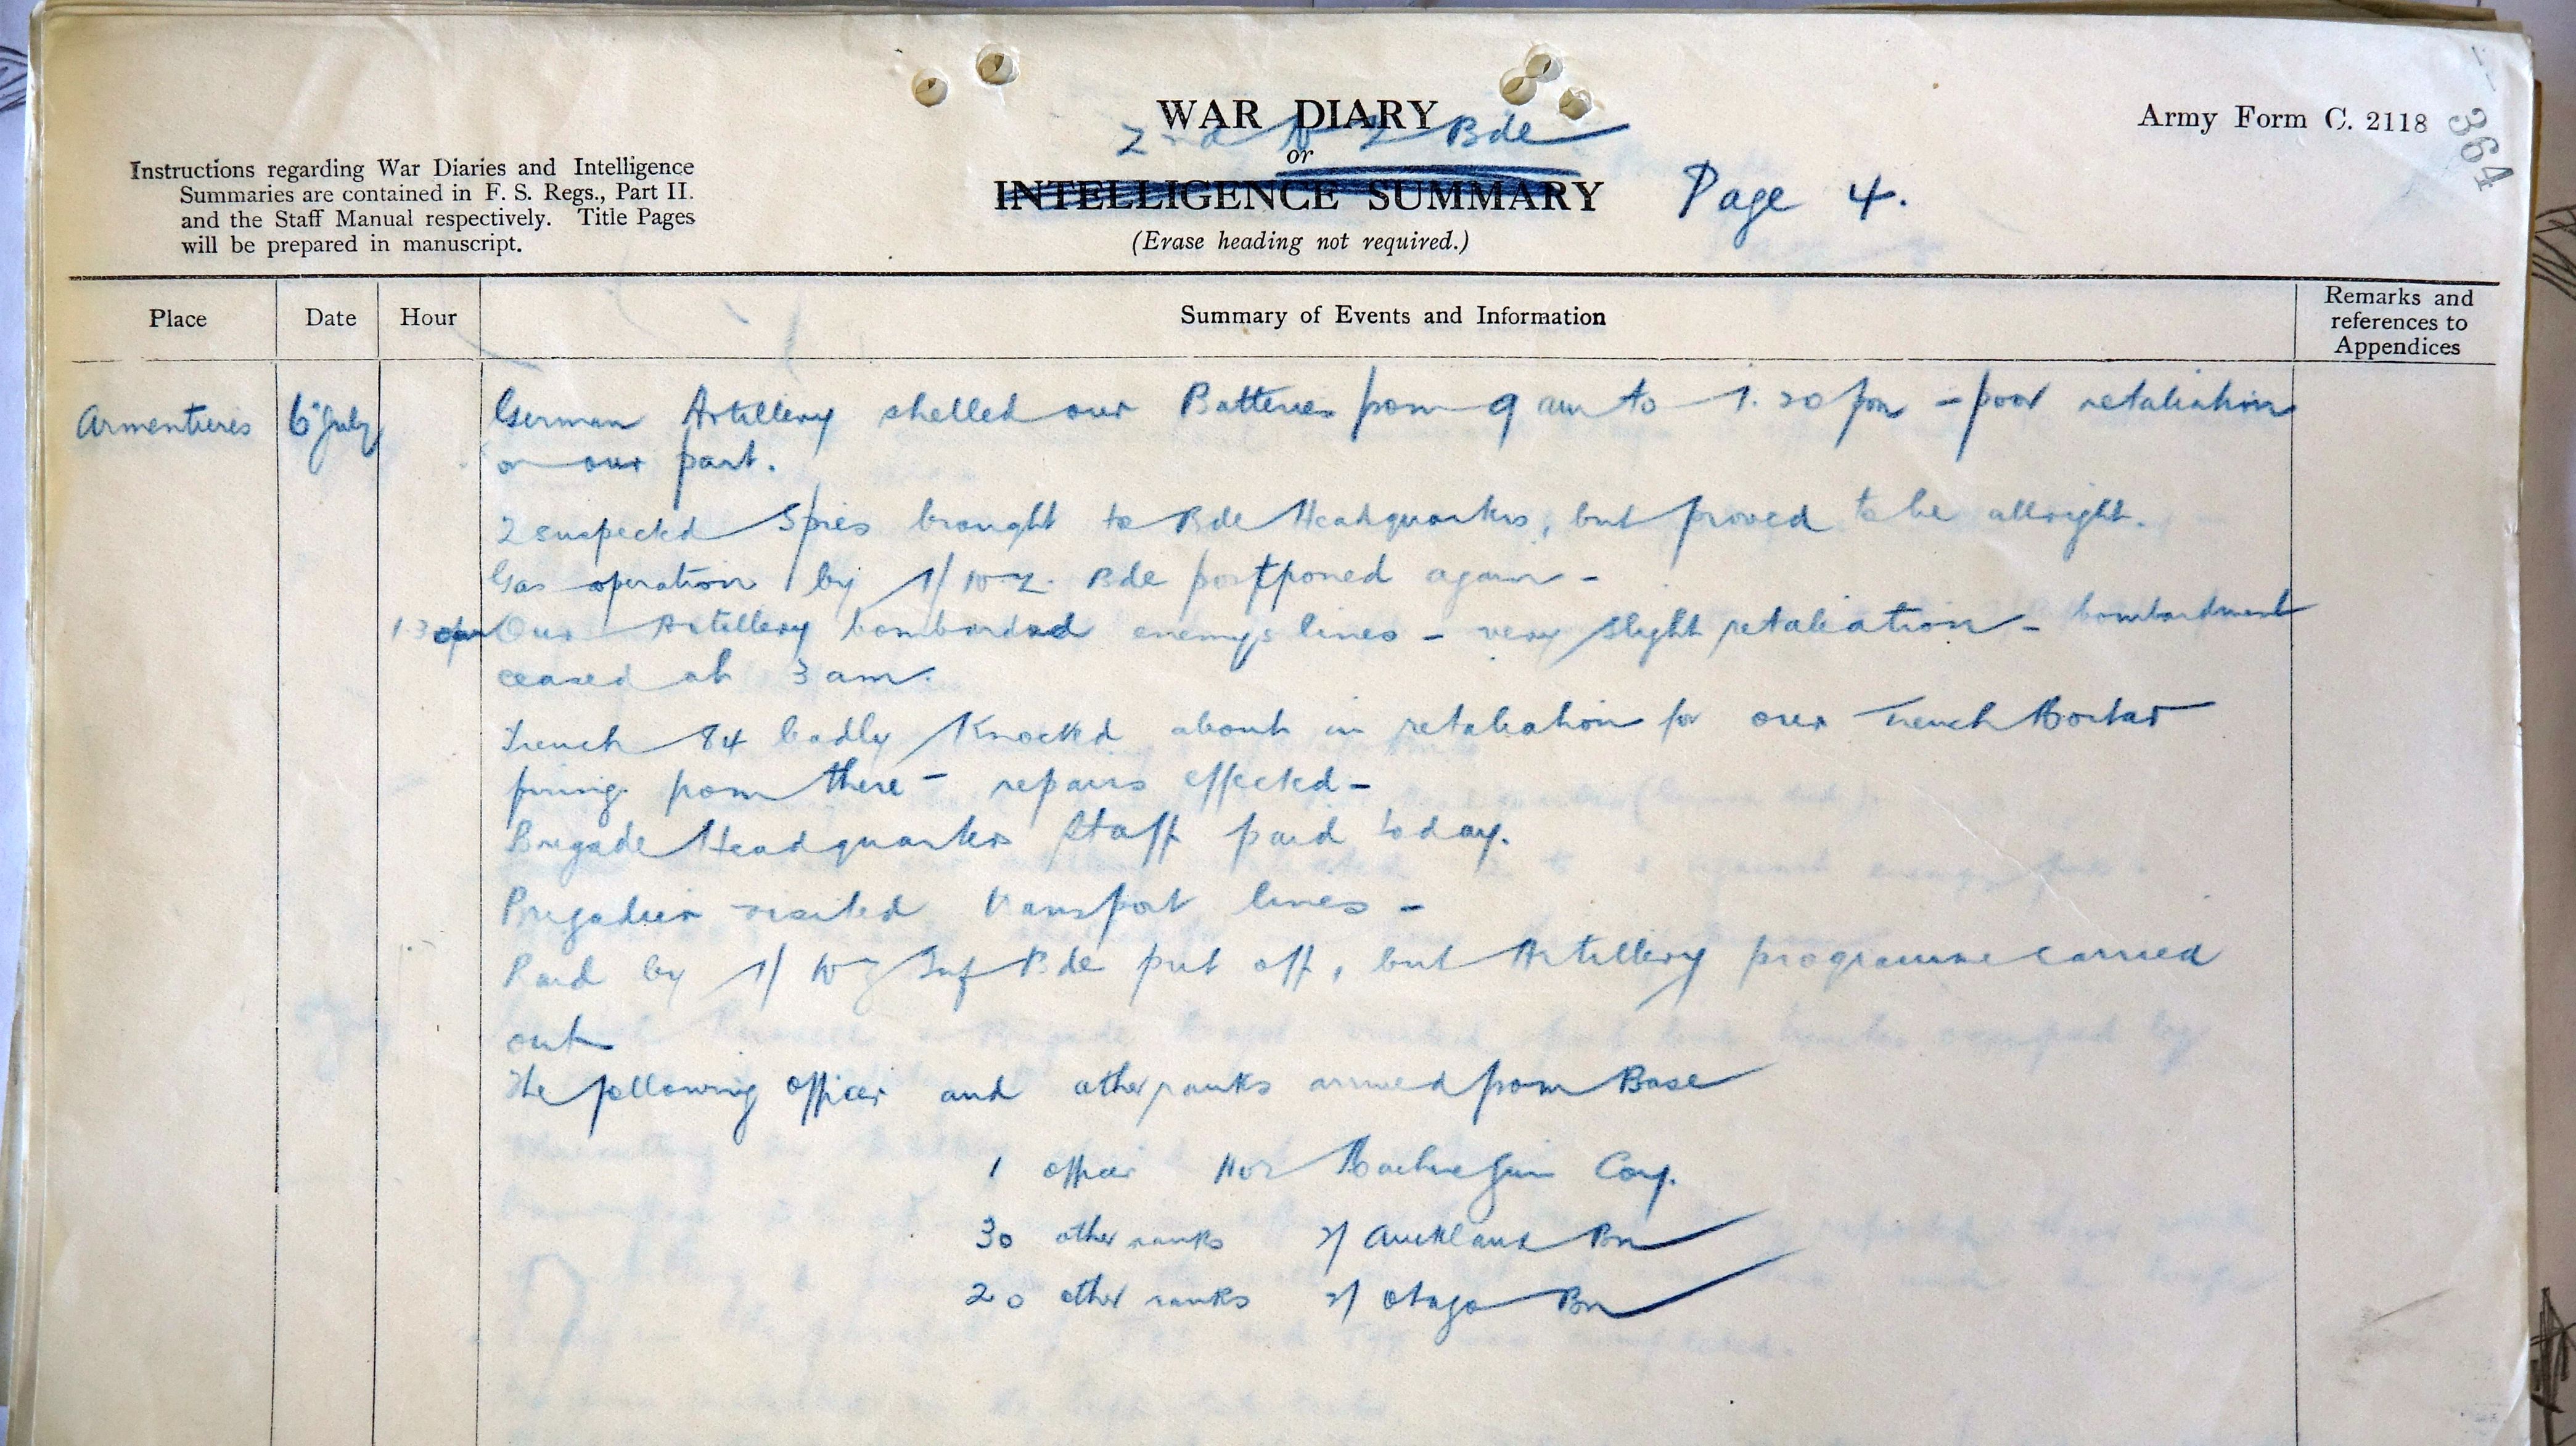 WAR DIARY
Army Form C. 2118
364
2nd N Z Bde
or
INTELLIGENCE SUMMARY
Page 4.
(Erase heading not required.)
Instructions regarding War Diaries and Intelligence
Summaries are contained in F. S. Regs., Part II.
and the Staff Manual respectively. Title Pages
will be prepared in manuscript.
Place Date Hour Summary of Events and Information Remarks and
references to
Appendices
Armentieres 6 July German Artillery shelled our Batteries from 9 am to 1.30 pm - poor retaliation
on our part.
2 suspected Spies brought to Bde Headquarters, but proved to be allright.
Gas operation by 1/ NZ. Bde postponed again -
1.30 Our Artillery bombarded enemys lines - very slight retaliation - bombardment
ceased at 3 am.
Trench 84 badly knocked about in retaliation for our Trench Mortar
firing from there - repairs effected -
Brigade Headquarters Staff paid today.
Brigadier visited transport lines -
Raid by 1/ NZ Inf Bde put off, but Artillery programme carried
out
The following officer and other ranks arrived from Base
1 officer No 2 Machine Gun Coy.
30 other ranks 2/ Auckland Bn
20 other ranks 2/ Otago Bn